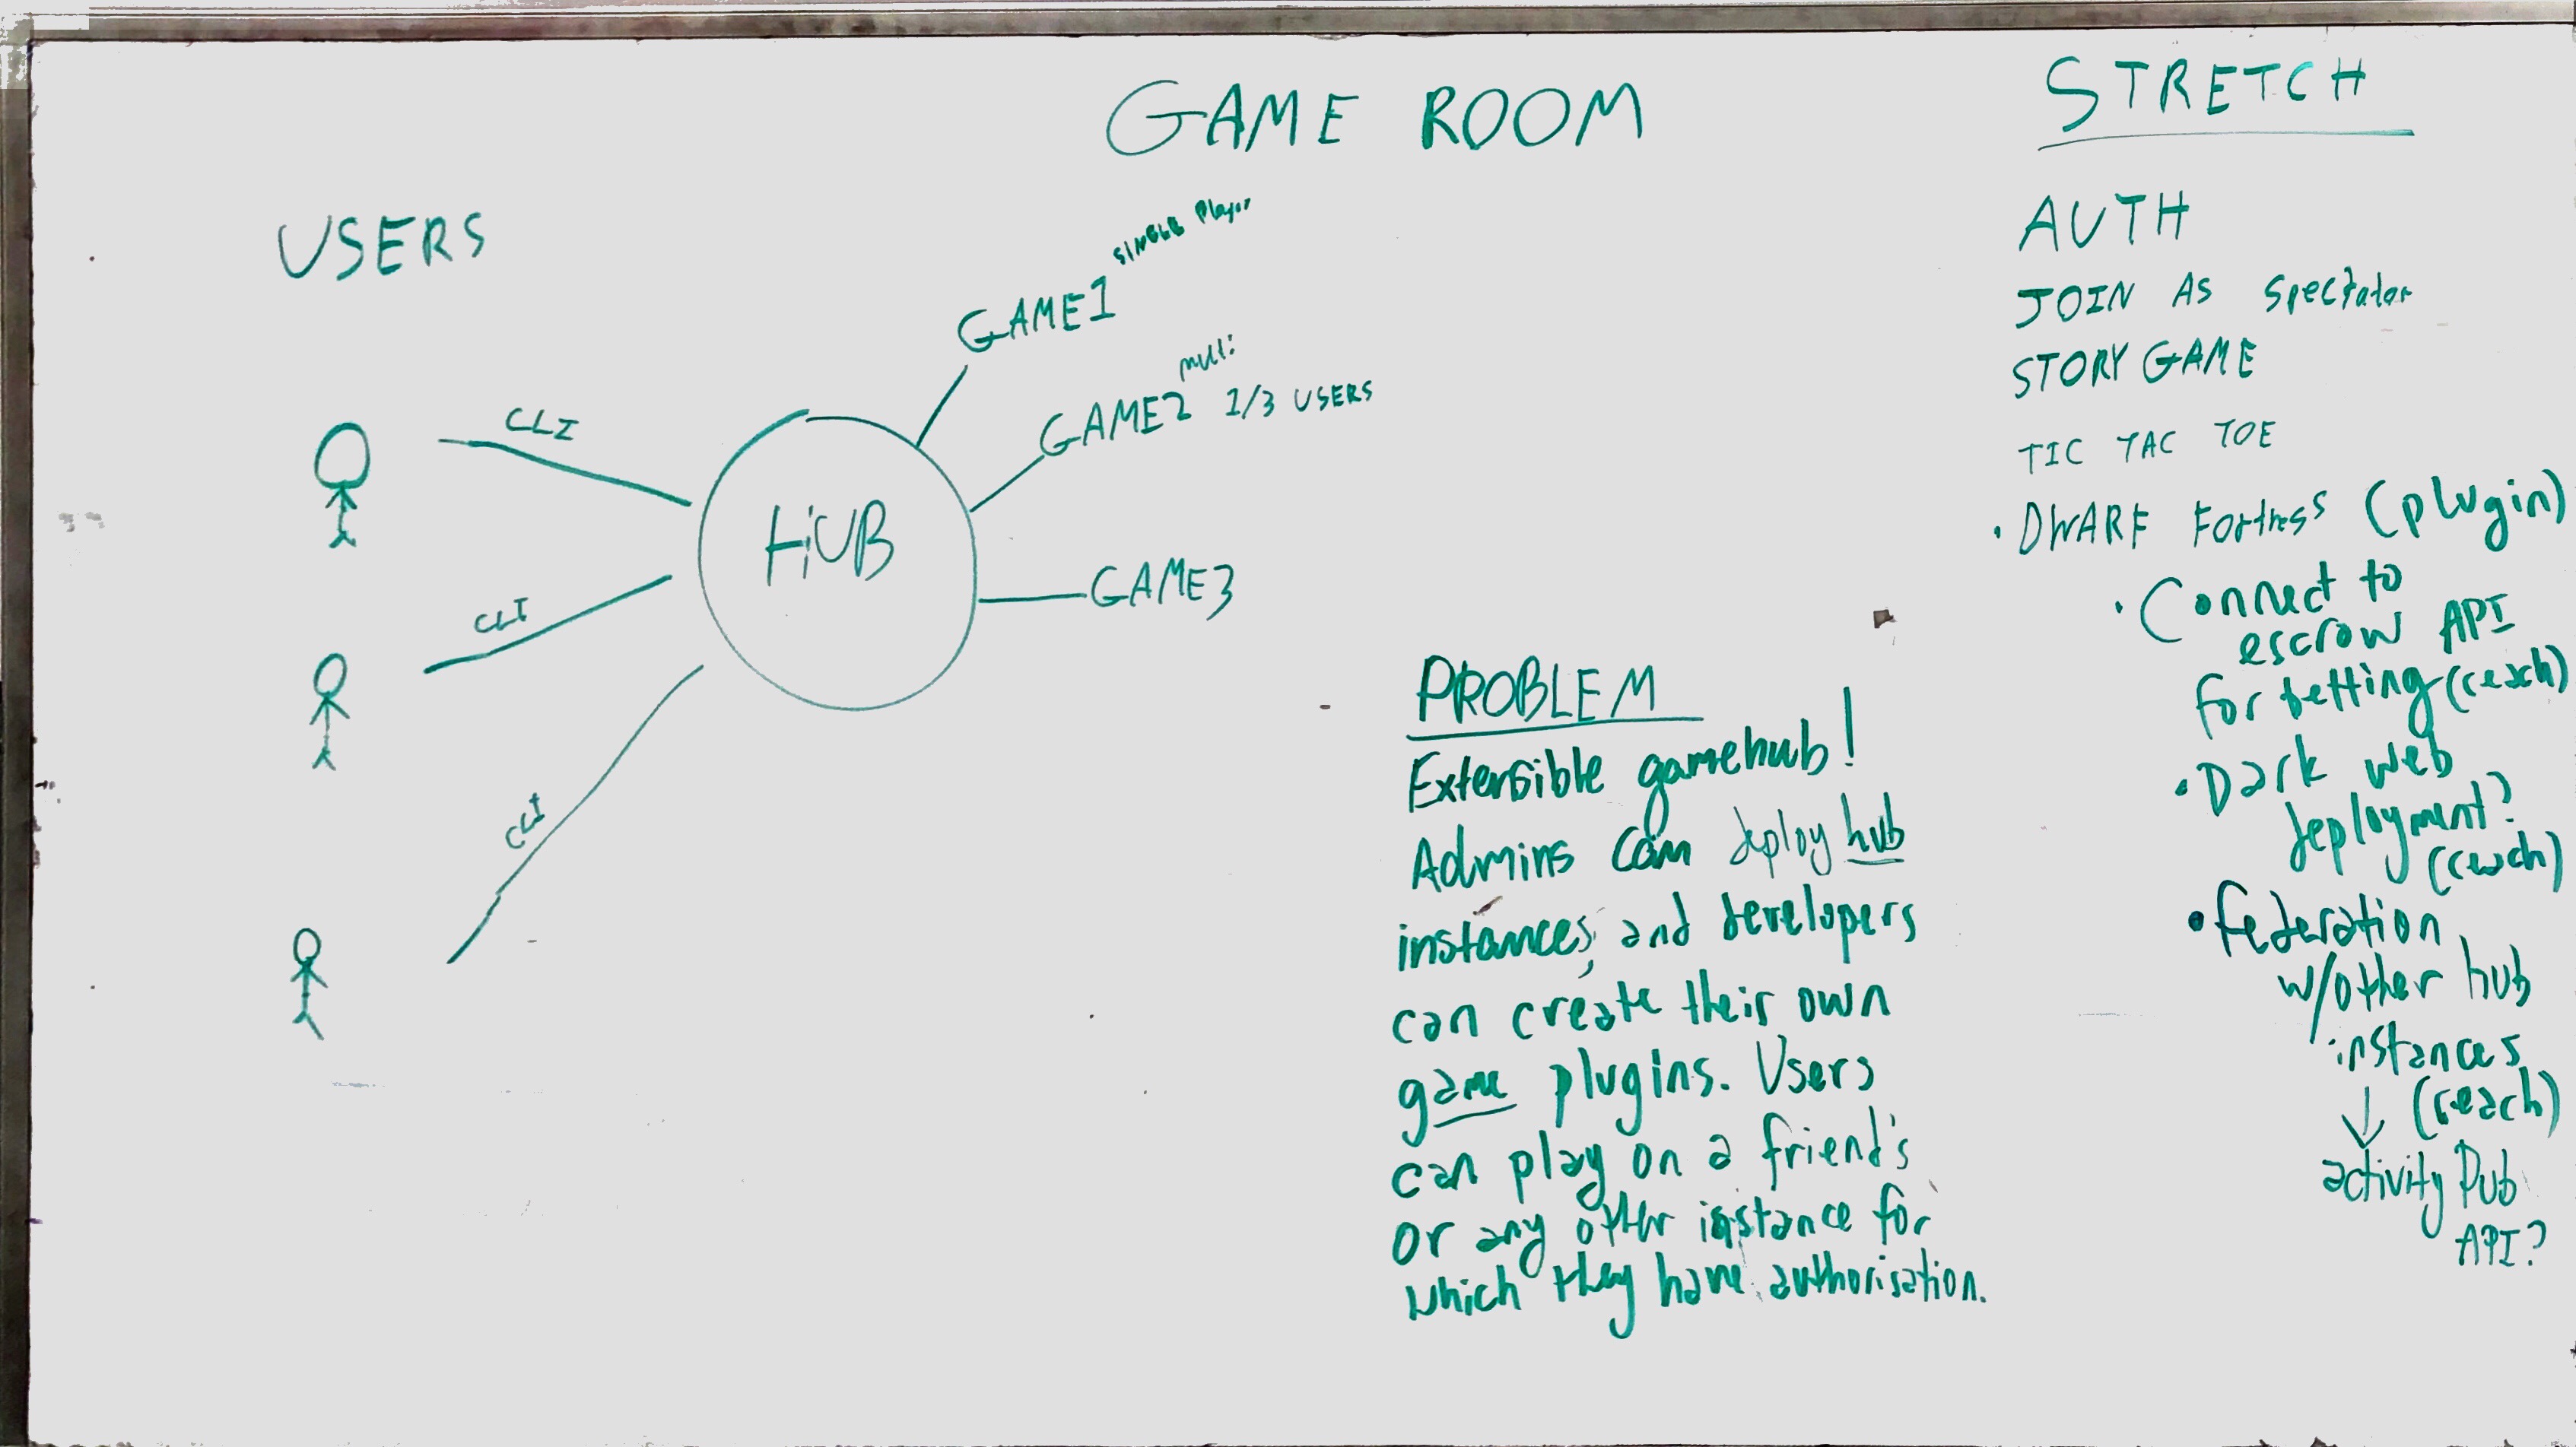 GAME ROOM
USERS
CLI
CLI
CLI
HUB
GAME1 SINGLE Player
GAME2 multi 1/3 USERS
GAME3
PROBLEM
Extensible gamehub!
Admins can deploy hub
instances, and developers
can create their own
game plugins. Users
can play on a friend's
or any other instance for
which they have authorisation.
STRETCH
AUTH
JOIN AS Spectator
STORY GAME
TIC TAC TOE
• DWARF Fortress (plugin)
• Connect to
escrow API
for betting (reach)
• Dark web
deployment?
(reach)
• federation
w/other hub
instances
(reach)
↓
activity Pub
API?